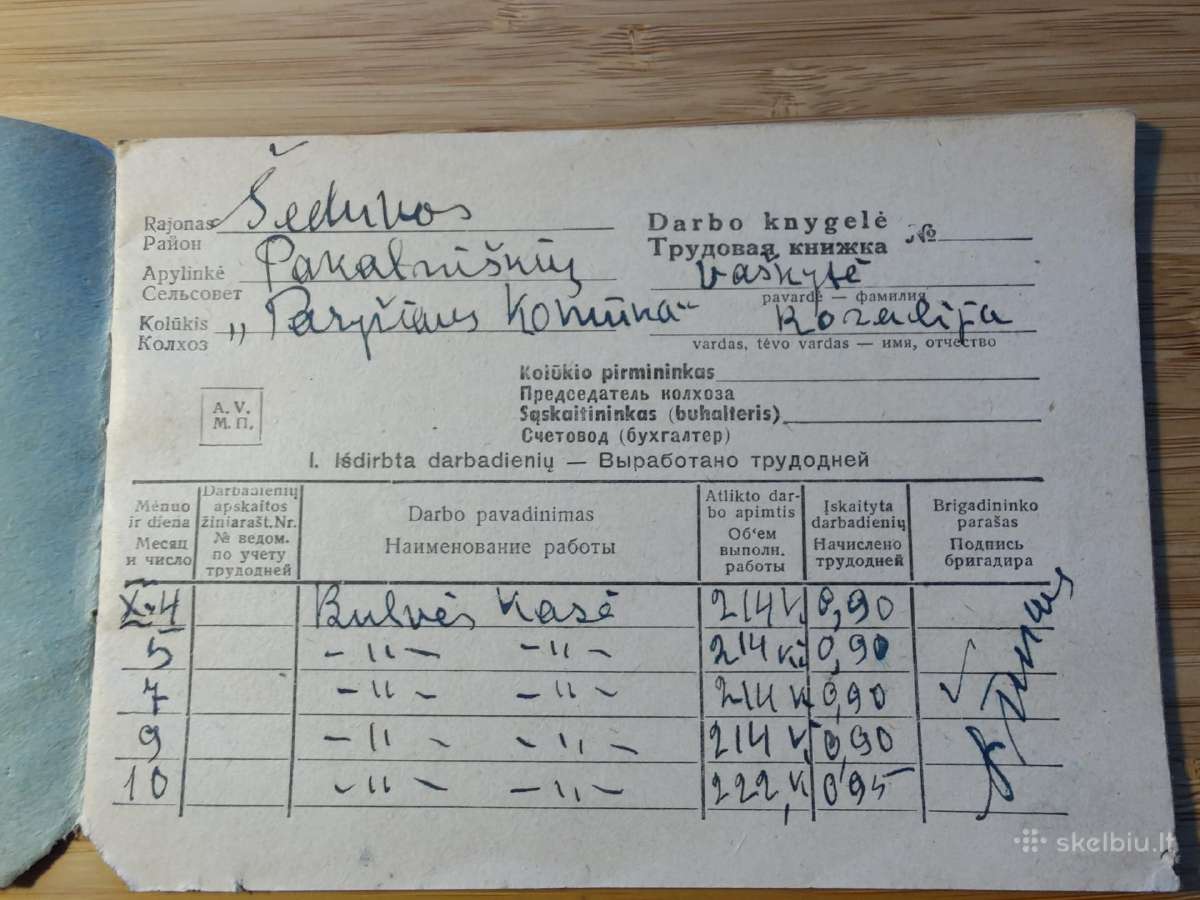 Rajonas Šeduvos
Район
Darbo knygelė №
Трудовая книжка
Apylinkė Pakalniškių
Сельсовет
Vaškytė
pavardė — фамилия
Kolūkis „Paryžiaus Komūna“
Колхоз
Rozalija
vardas, tėvo vardas — имя, отчество
Kolūkio pirmininkas
Председатель колхоза
Sąskaitininkas (buhalteris)
Счетовод (бухгалтер)
A. V.
М. П.
I. Išdirbta darbadienių — Выработано трудодней
Mėnuo ir diena
Месяц и число
Darbadienių apskaitos žiniarašt. Nr.
№ ведом. по учету трудодней
Darbo pavadinimas
Наименование работы
Atlikto darbo apimtis
Об‘ем выполн. работы
Įskaityta darbadienių
Начислено трудодней
Brigadininko parašas
Подпись бригадира
X-4 Bulvės kasė 214 k 0,90
5 -"- -"- 214 k 0,90
7 -"- -"- 214 k 0,90
9 -"- -"- 214 k 0,90
10 -"- -"- 222 k 0,95
skelbiu.lt